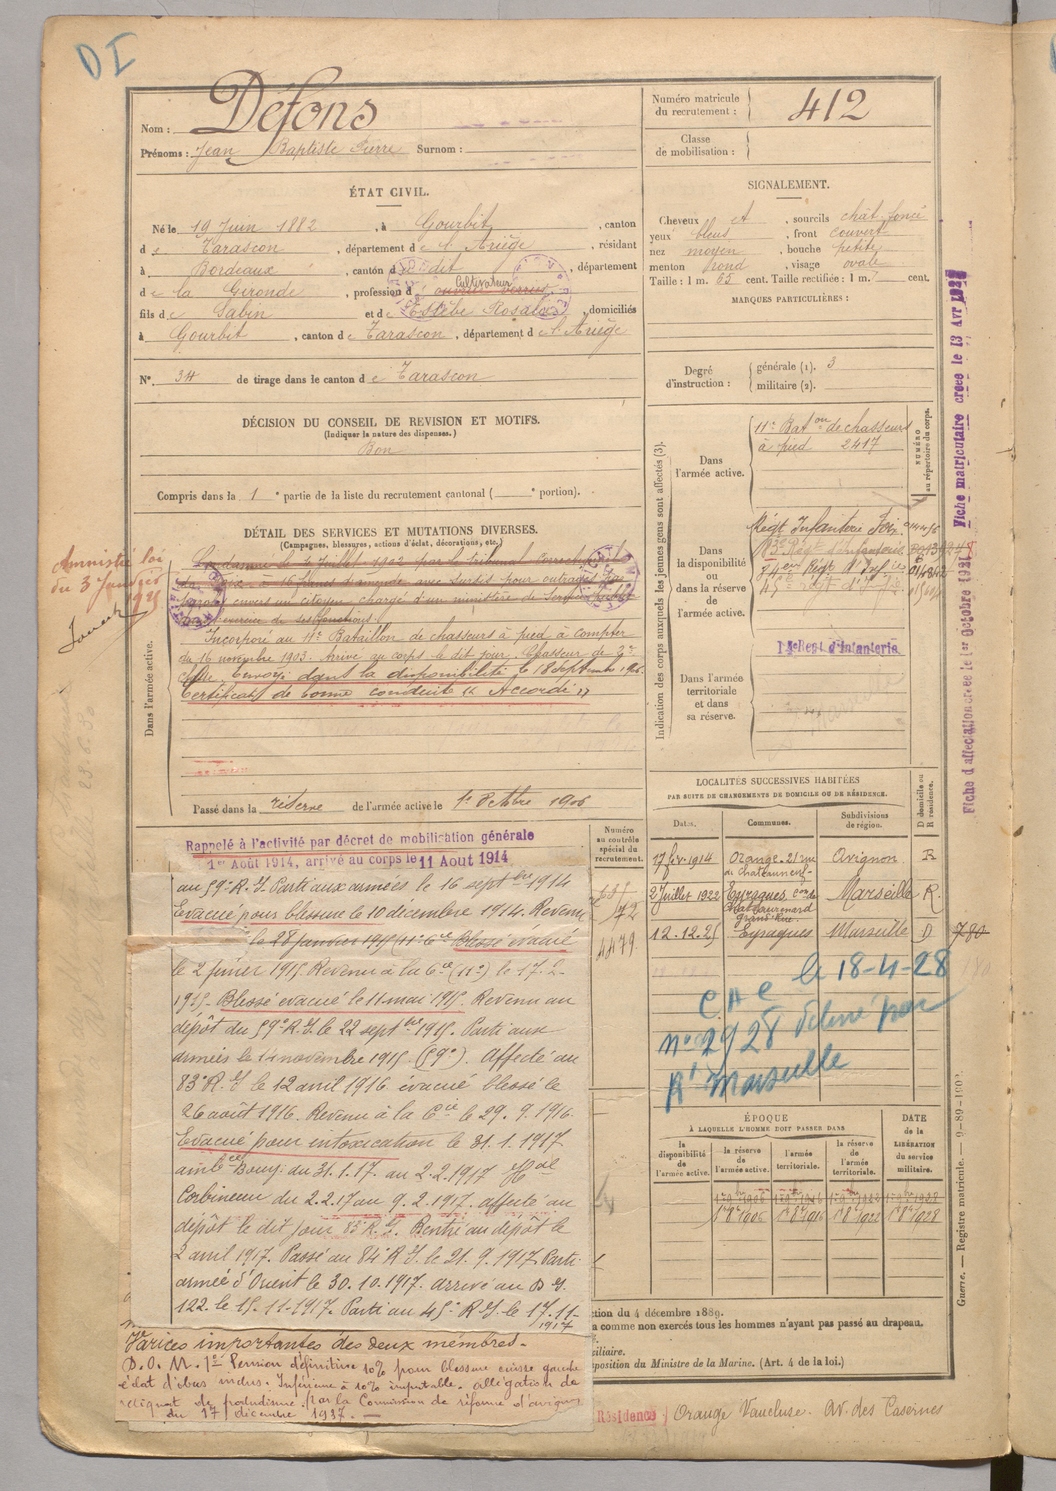 DI
Nom : Défons
Prénoms : Jean Baptiste Pierre Surnom :
Numéro matricule du recrutement : 412
Classe de mobilisation :
ÉTAT CIVIL.
Né le 19 Juin 1882, à Gourbit, canton
de Tarascon, département de l'Ariège, résidant
à Bordeaux, canton du dit, département
de la Gironde, profession d Cultivateur
fils de Sabin et de Estèbe Rosalie, domiciliés
à Gourbit, canton de Tarascon, département de l'Ariège
N° 34 de tirage dans le canton de Tarascon
SIGNALEMENT.
Cheveux et, sourcils chât. foncé
yeux bleus, front couvert
nez moyen, bouche petite
menton rond, visage ovale
Taille : 1 m. 65 cent. Taille rectifiée : 1 m. cent.
MARQUES PARTICULIÈRES :
Degré d'instruction : générale (1). 3
militaire (2).
DÉCISION DU CONSEIL DE REVISION ET MOTIFS.
(Indiquer la nature des dispenses.)
Bon
Compris dans la 1e partie de la liste du recrutement cantonal ( e portion).
DÉTAIL DES SERVICES ET MUTATIONS DIVERSES.
(Campagnes, blessures, actions d'éclat, décorations, etc.)
Amnistié loi
du 3 Janvier
1925
Dans l'armée active.
Incorporé au 11e Bataillon de chasseurs à pied à compter
du 16 novembre 1903. Arrivé au corps le dit jour, Chasseur de 2e
classe. Envoyé dans la disponibilité le 18 Septembre 1906.
Certificat de bonne conduite "Accordé"
Passé dans la réserve de l'armée active le 1er Octobre 1906
Indication des corps auxquels les jeunes gens sont affectés (3).
NUMÉRO au répertoire du corps.
Dans l'armée active.
11e Baton de chasseurs
à pied 2417
Dans la disponibilité ou dans la réserve de l'armée active.
Régt Infanterie Foix
83e Régt d'Infanterie
Dans l'armée territoriale et dans sa réserve.
Régt d'Infanterie
Fiche d'affectation créée le 1er Octobre 1921 Fiche matriculaire créée le 13 Avr
LOCALITÉS SUCCESSIVES HABITÉES
PAR SUITE DE CHANGEMENTS DE DOMICILE OU DE RÉSIDENCE.
Dates. Communes. Subdivisions de région. D domicile ou R résidence.
17 fév. 1914 Orange. 21 rue de Chateauneuf Avignon R
2 Juillet 1922 Eyragues Grand Rue Marseille R.
12.12.25 Eyragues Marseille D
780
C A C le 18-4-28
n° 2928 délivré par
Rt Marseille
Numéro au contrôle spécial du recrutement.
4479
Rappelé à l'activité par décret de mobilisation générale
1er Août 1914, arrivé au corps le 11 Aout 1914
au 59e R.I. Parti aux armées le 16 septbre 1914
Evacué pour blessure le 10 décembre 1914. Revenu
le 28 janvier 1915 (11e Cie) Blessé évacué
le 2 février 1915. Revenu à la 6e Cie (11e) le 17-2-
1915. Blessé évacué le 11 mai 1915. Revenu au
dépôt du 59e R.I. le 22 septbre 1915. Parti aux
armées le 14 novembre 1915 (59e). Affecté au
83e R.I. le 12 avril 1916. évacué blessé le
26 août 1916. Revenu à la Cie le 29.9.1916.
Evacué pour intoxication le 31.1.1917
ambce Bouy. du 31.1.17. au 2.2.1917 Hal
Corbineau du 2.2.17 au 9.2.1917. affecté au
dépôt le dit jour 83e R.I. Rentré au dépôt le
2 avril 1917. Passé au 84e R.I. le 21.9.1917. Parti
armée d'Orient le 30.10.1917. arrivé au D.I.
122. le 15.11.1917. Parti au 45e R.I. le 17.11-
1917
Varices importantes des deux membres.
P.O.M. 1° Pension définitive 10% pour blessure cuisse gauche
éclat d'obus inclus. Inférieure à 10% imputable. allégation de
reliquat de paludisme. par la Commission de réforme d'Avignon
du 17 décembre 1937.
ÉPOQUE
À LAQUELLE L'HOMME DOIT PASSER DANS
la disponibilité de l'armée active. la réserve de l'armée active. l'armée territoriale. la réserve de l'armée territoriale.
DATE de la LIBÉRATION du service militaire.
1er 8bre 1906 1er 8bre 1916 1er 8bre 1922 1er 8bre 1928
ction du 4 décembre 1889.
a comme non exercés tous les hommes n'ayant pas passé au drapeau.
xiliaire.
sposition du Ministre de la Marine. (Art. 4 de la loi.)
Guerre. — Registre matricule. — 9-89-1902.
Résidence Orange Vaucluse. Av. des Casernes